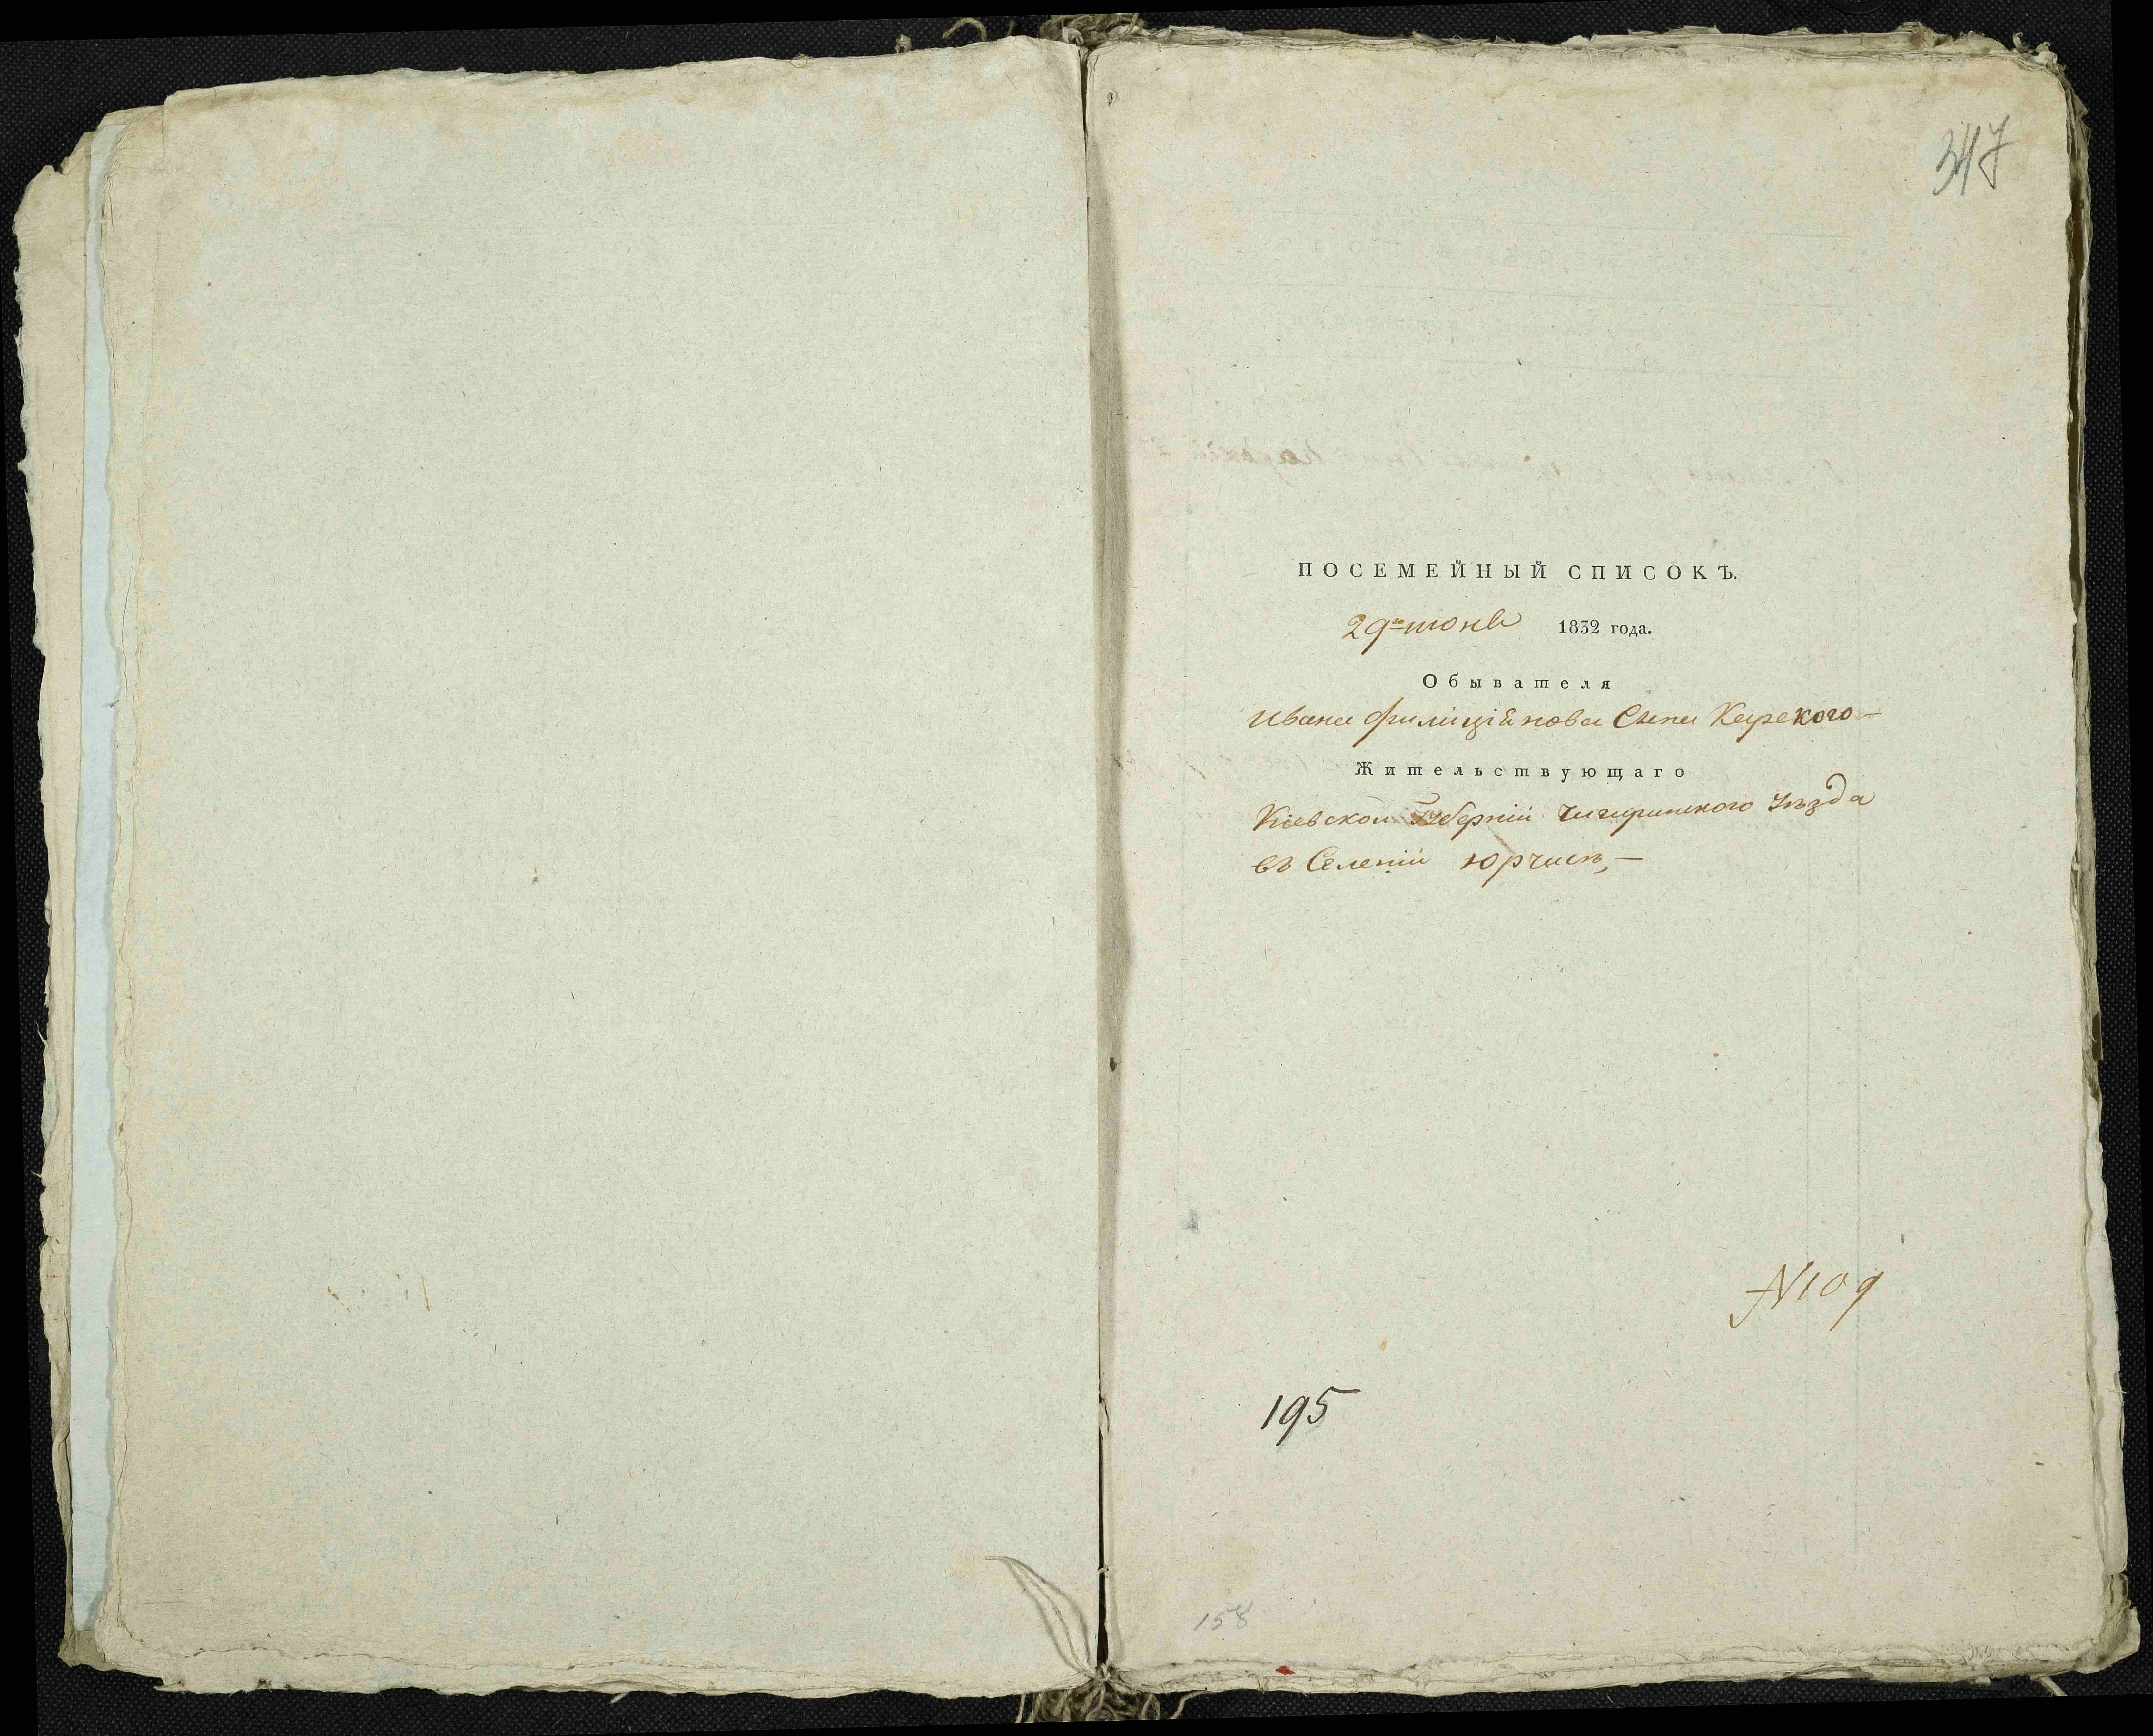 347
ПОСЕМЕЙНЫЙ СПИСОКЪ.
29го июня 1832 года.
Обывателя
Ивана Филиційнова Сына Карского
Жительствующаго
Кіевской Губерніи Чигиринского Уезда
въ Селеніи Юрчисъ,
N109
195
158